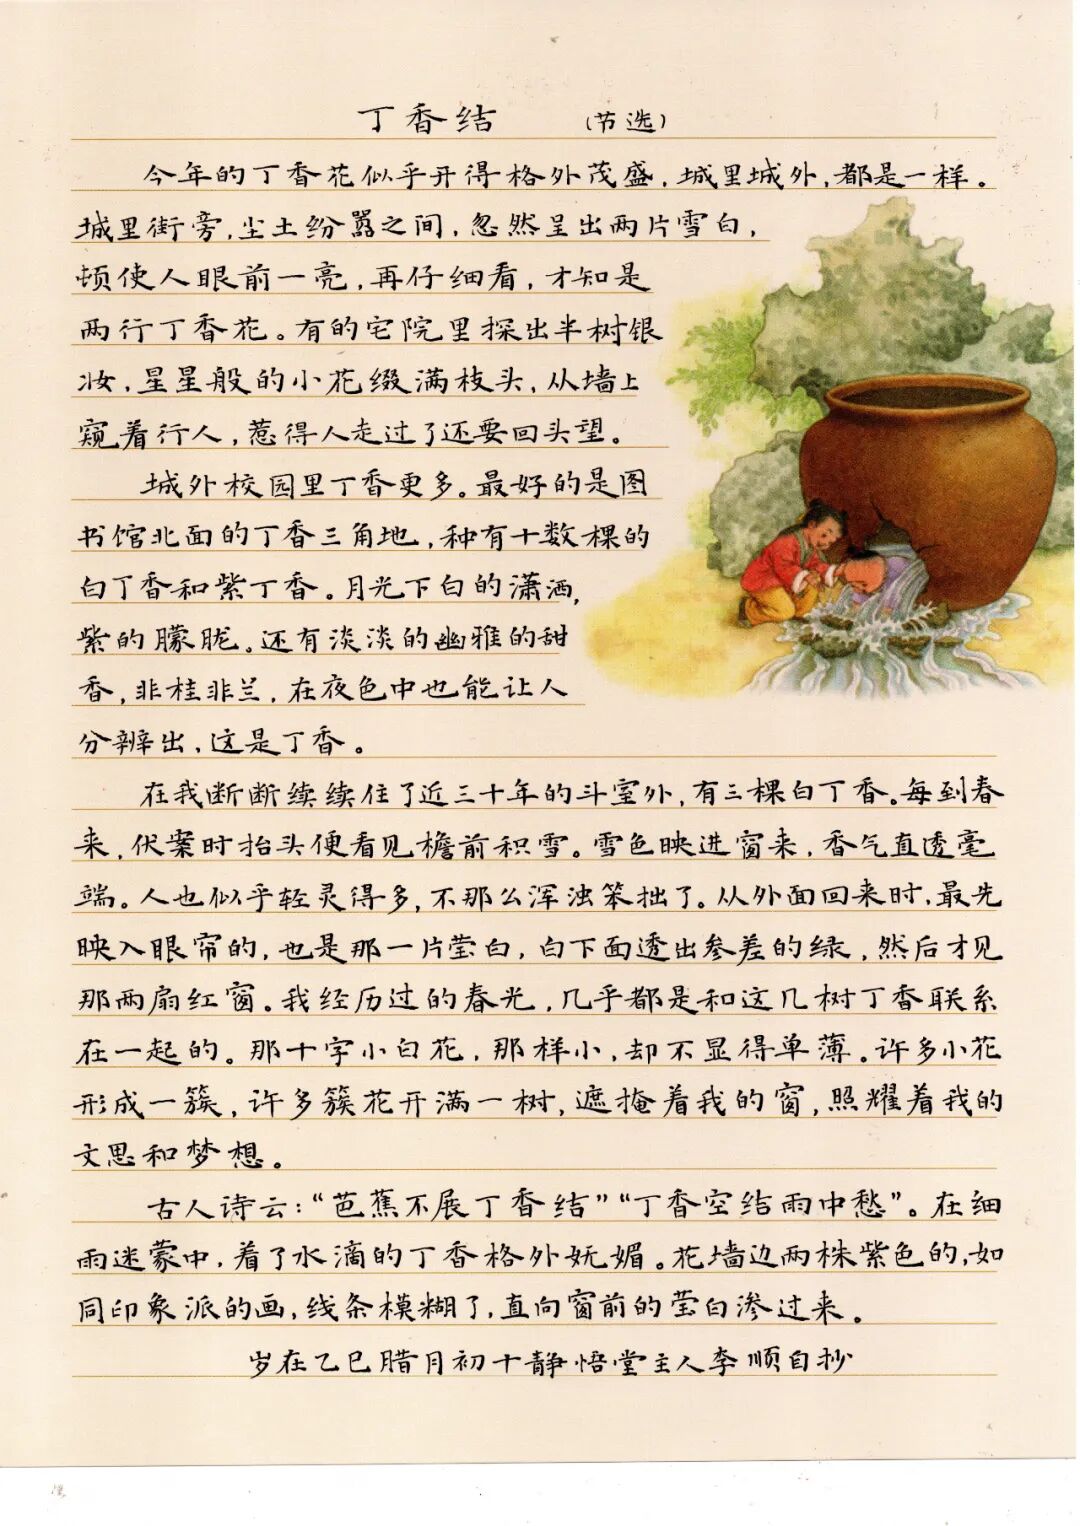 丁香结 （节选）
今年的丁香花似乎开得格外茂盛，城里城外，都是一样。
城里街旁，尘土纷嚣之间，忽然呈出两片雪白，
顿使人眼前一亮，再仔细看，才知是
两行丁香花。有的宅院里探出半树银
妆，星星般的小花缀满枝头，从墙上
窥着行人，惹得人走过了还要回头望。
城外校园里丁香更多。最好的是图
书馆北面的丁香三角地，种有十数棵的
白丁香和紫丁香。月光下白的潇洒，
紫的朦胧。还有淡淡的幽雅的甜
香，非桂非兰，在夜色中也能让人
分辨出，这是丁香。
在我断断续续住了近三十年的斗室外，有三棵白丁香。每到春
来，伏案时抬头便看见檐前积雪。雪色映进窗来，香气直透毫
端。人也似乎轻灵得多，不那么浑浊笨拙了。从外面回来时，最先
映入眼帘的，也是那一片莹白，白下面透出参差的绿，然后才见
那两扇红窗。我经历过的春光，几乎都是和这几树丁香联系
在一起的。那十字小白花，那样小，却不显得单薄。许多小花
形成一簇，许多簇花开满一树，遮掩着我的窗，照耀着我的
文思和梦想。
古人诗云：“芭蕉不展丁香结”“丁香空结雨中愁”。在细
雨迷蒙中，着了水滴的丁香格外妩媚。花墙边两株紫色的，如
同印象派的画，线条模糊了，直向窗前的莹白渗过来。
岁在乙巳腊月初十静悟堂主人李顺自抄